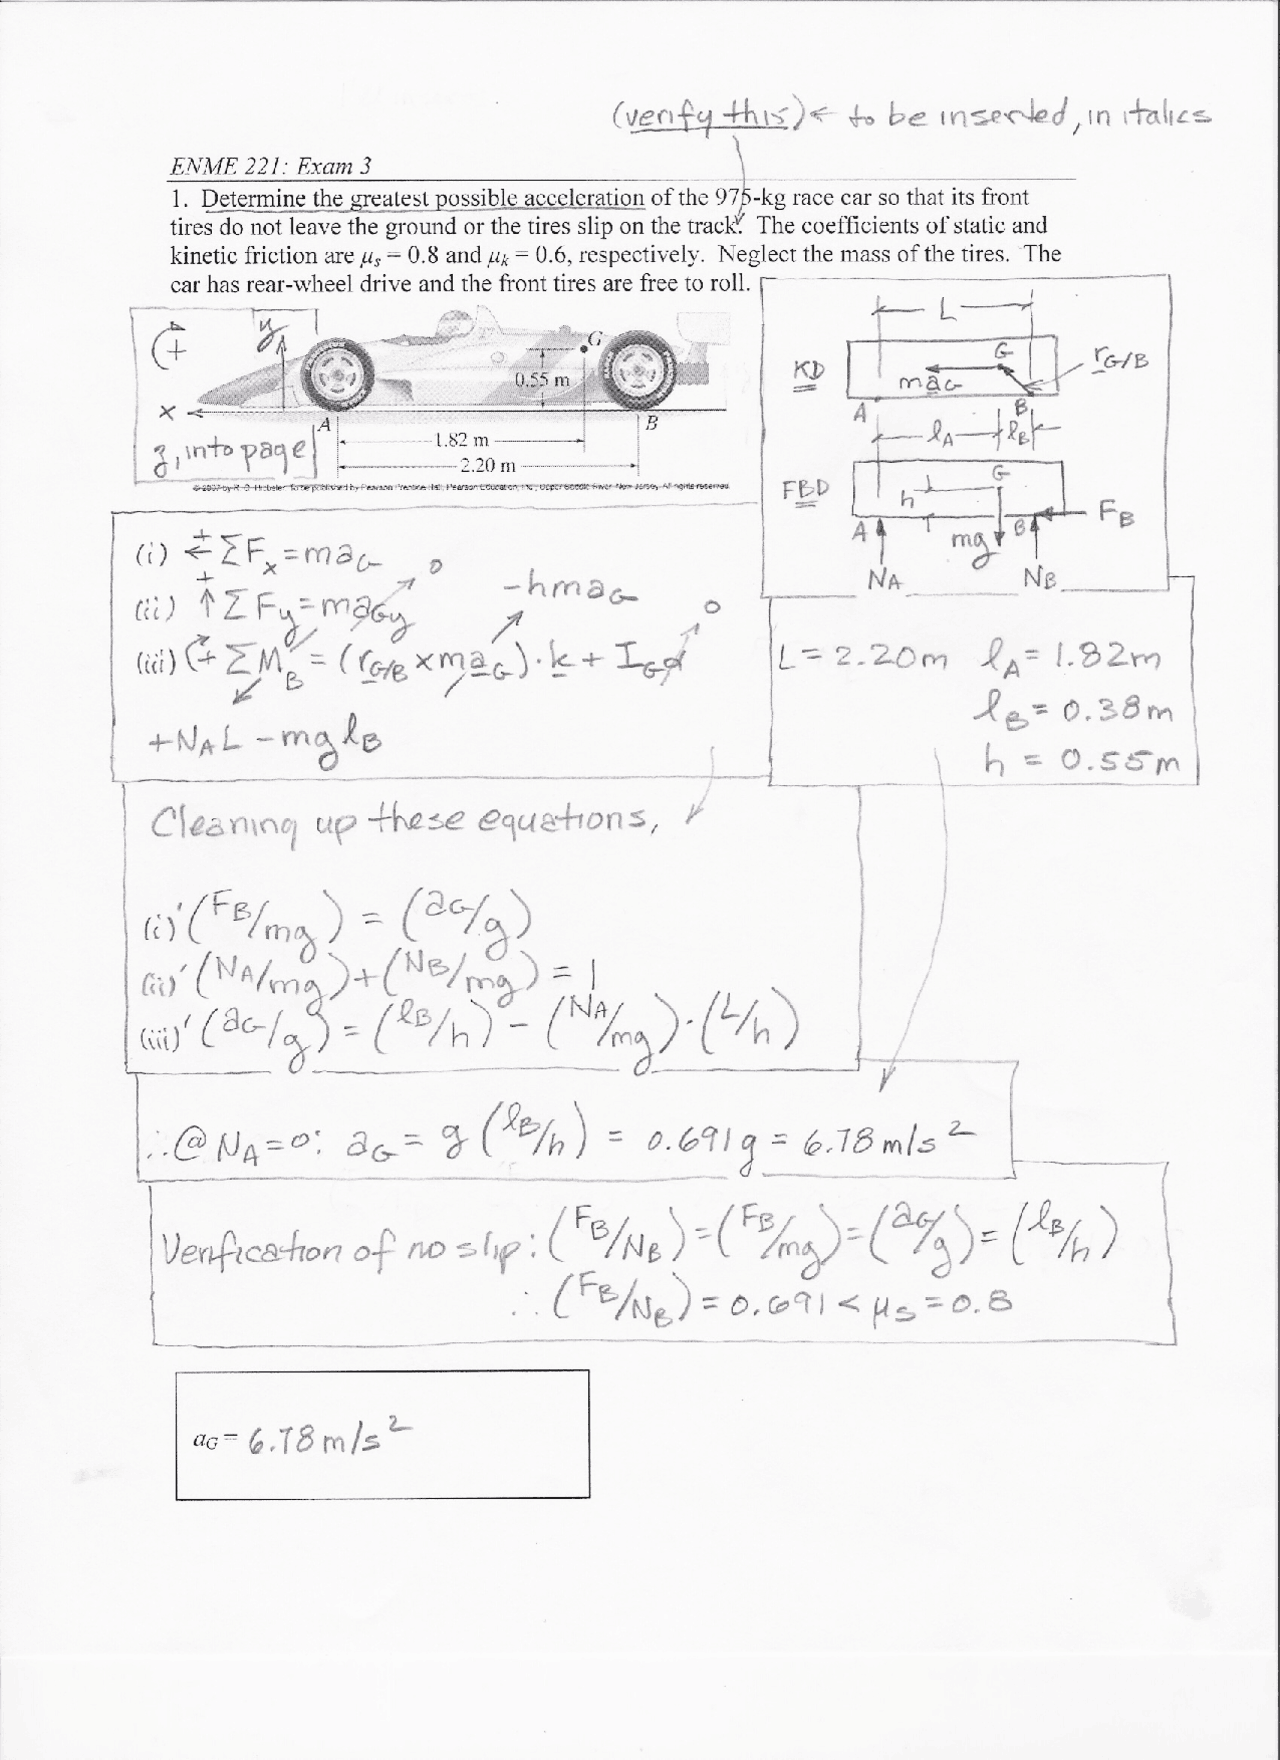 (verify this) ← to be inserted, in italics
ENME 221: Exam 3
1. Determine the greatest possible acceleration of the 975-kg race car so that its front
tires do not leave the ground or the tires slip on the track. The coefficients of static and
kinetic friction are μs = 0.8 and μk = 0.6, respectively. Neglect the mass of the tires. The
car has rear-wheel drive and the front tires are free to roll.
+
y
x
z, into page
G
0.55 m
A
B
1.82 m
2.20 m
L
KD
G
maG
rG/B
A
B
lA
lB
FBD
G
h
A
mg
B
FB
NA
NB
(i) ←+ ΣFx = maG
(ii) +↑ ΣFy = maGy → 0
(iii) (+ ΣMB = (rG/B x maG)·k + IGα → 0
-hmaG
+NAL - mglB
L = 2.20m lA = 1.82m
lB = 0.38m
h = 0.55m
Cleaning up these equations,
(i)' (FB/mg) = (aG/g)
(ii)' (NA/mg) + (NB/mg) = 1
(iii)' (aG/g) = (lB/h) - (NA/mg)·(L/h)
∴ @ NA=0: aG = g (lB/h) = 0.691g = 6.78 m/s²
Verification of no slip: (FB/NB) = (FB/mg) = (aG/g) = (lB/h)
∴ (FB/NB) = 0.691 < μs = 0.8
aG = 6.78 m/s²